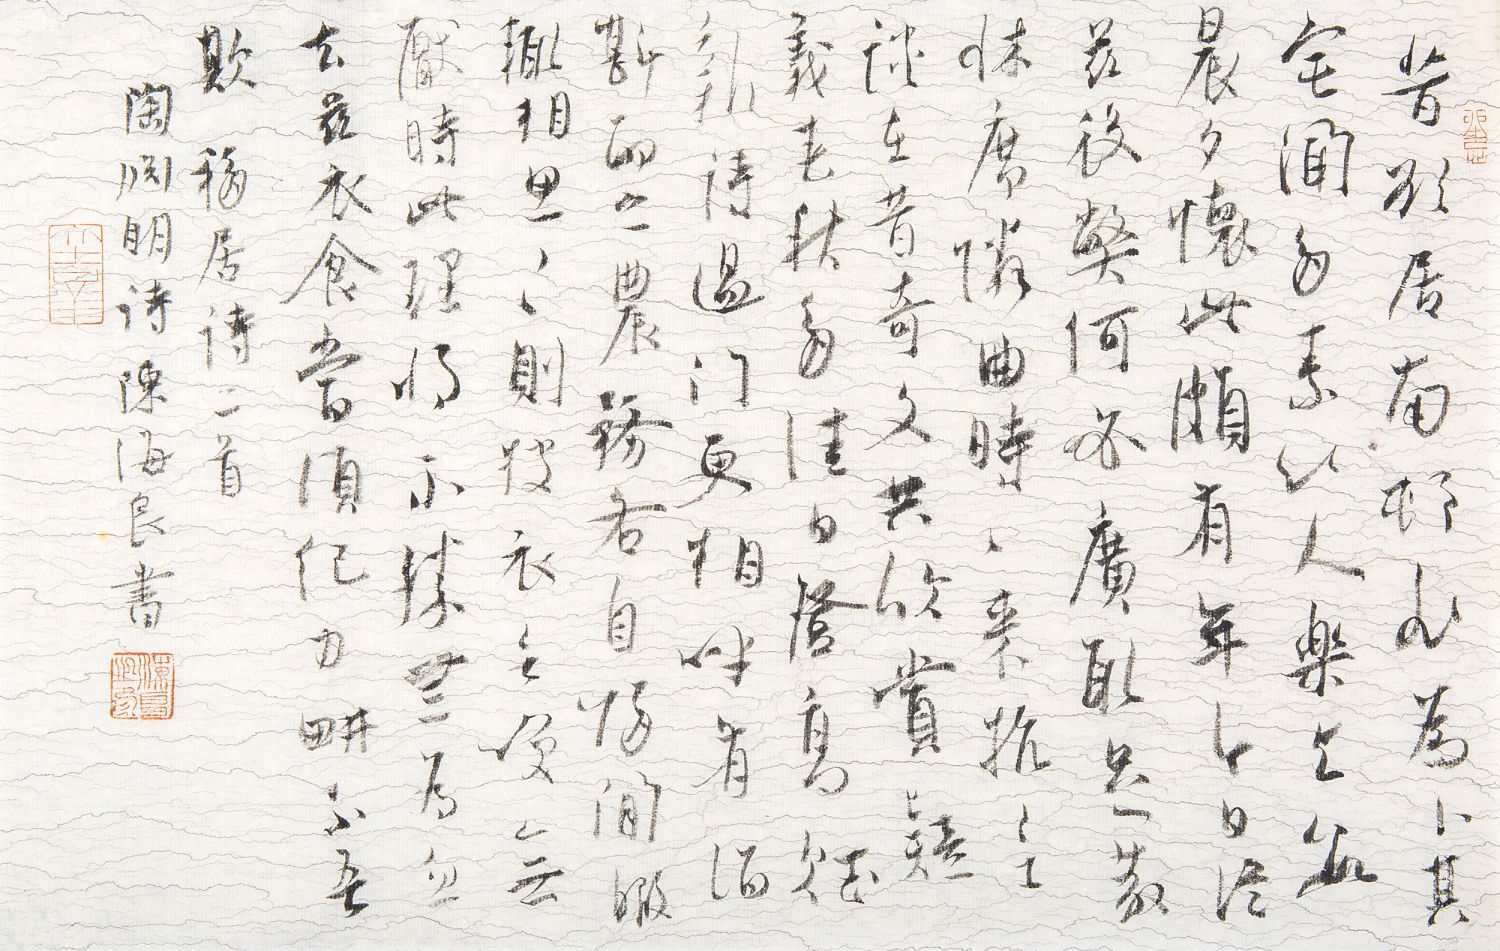 昔欲居南邨非為卜其
宅聞多素心人樂與數
晨夕懷此頗有年今日從
茲役弊何必廣取足蔽
床席隣曲時〻来抗言
談在昔奇文共欣賞疑
義春秋多佳日登高賦
新詩過门更相呼有酒
斟酌之農務各自歸閒暇
輒相思〻〻則披衣言笑無
厭時此理將不勝無為忽
去茲衣食當須紀力畊不吾
欺 移居詩二首
陶渊明詩陳海良書